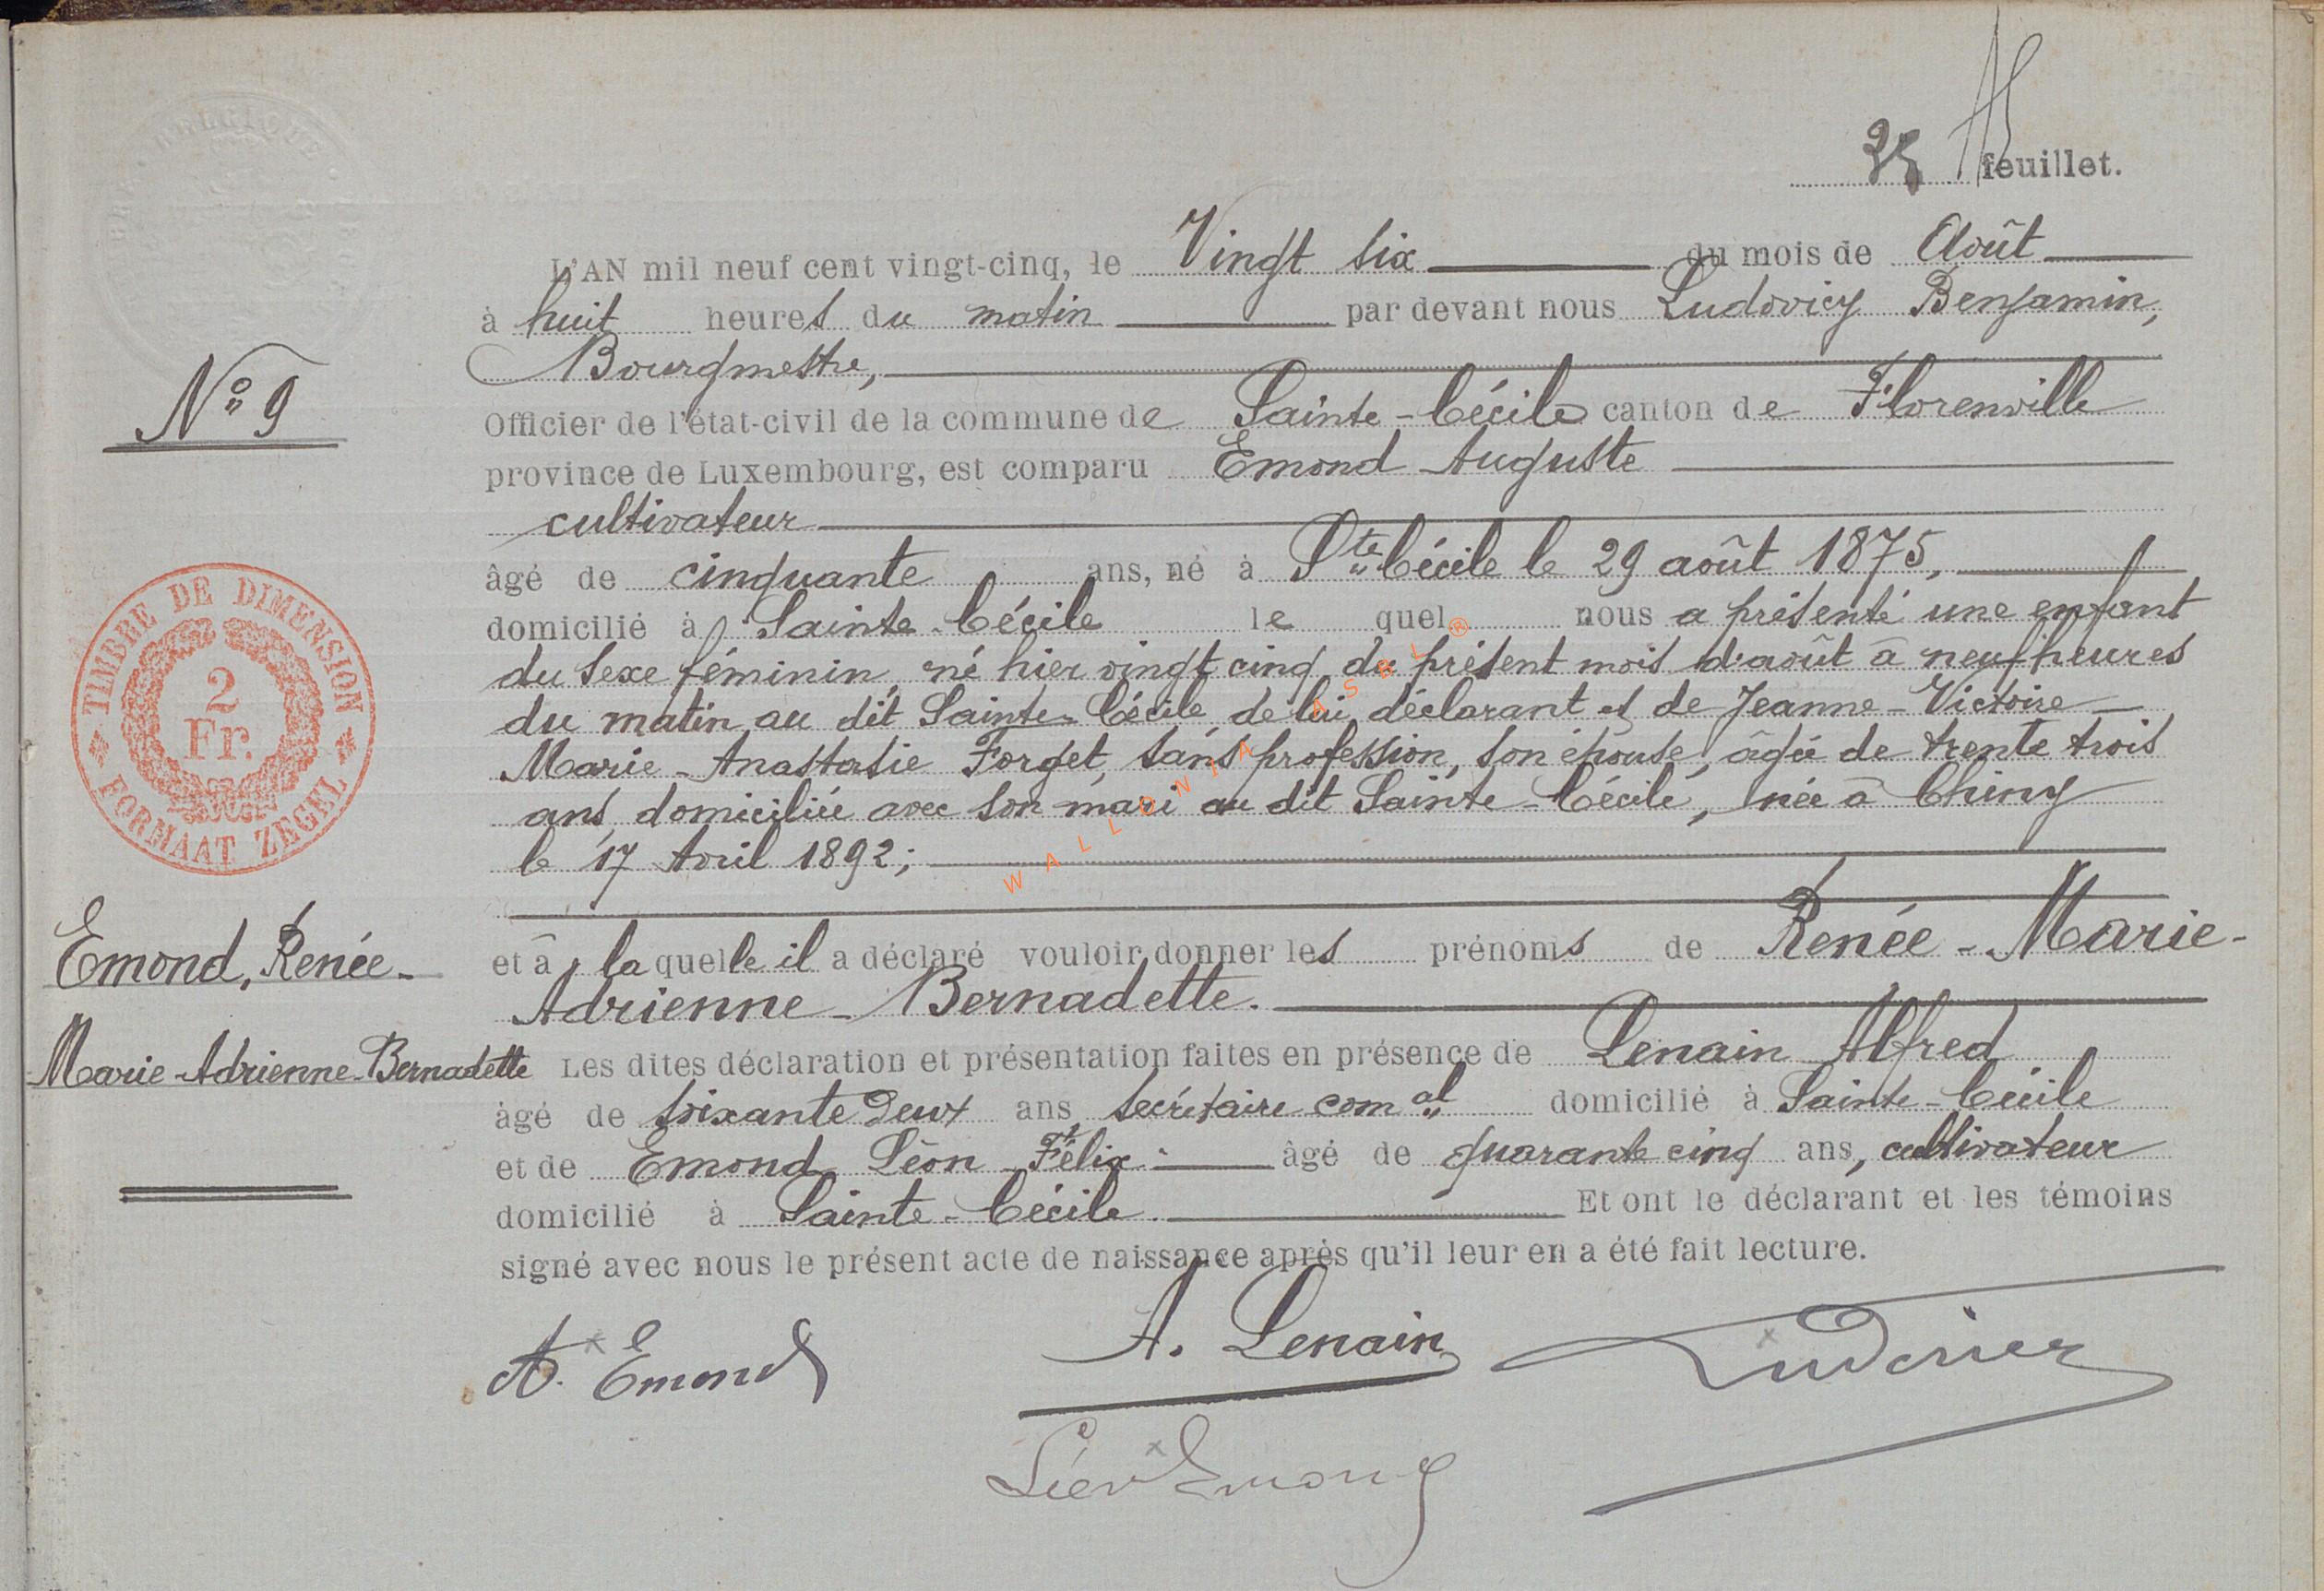 25 feuillet.
L'AN mil neuf cent vingt-cinq, le Vingt six du mois de Août
à huit heures du matin par devant nous Ludovicy Benjamin,
Bourgmestre,
N° 9
Officier de l'état-civil de la commune de Sainte-Cécile canton de Florenville
province de Luxembourg, est comparu Emond Auguste
cultivateur
âgé de cinquante ans, né à Ste Cécile le 29 août 1875,
domicilié à Sainte-Cécile le quel nous a présenté une enfant
du sexe féminin, né hier vingt cinq du présent mois d'août à neuf heures
du matin au dit Sainte-Cécile, de lui déclarant et de Jeanne-Victoire-
Marie-Anastasie Forget, sans profession, son épouse, âgée de trente trois
ans, domiciliée avec son mari au dit Sainte-Cécile, née à Chiny
le 17 Avril 1892;
TIMBRE DE DIMENSION
2
Fr.
FORMAAT ZEGEL
WALLONIA ASBL ®
Emond, Renée-
Marie-Adrienne-Bernadette
et à la quelle il a déclaré vouloir donner les prénoms de Renée-Marie-
Adrienne-Bernadette.
Les dites déclaration et présentation faites en présence de Lenain Alfred
âgé de soixante deux ans secrétaire comal domicilié à Sainte-Cécile
et de Emond Léon-Félix âgé de quarante cinq ans, cultivateur
domicilié à Sainte-Cécile. Et ont le déclarant et les témoins
signé avec nous le présent acte de naissance après qu'il leur en a été fait lecture.
A. Emond
A. Lenain
Ludovicy
Léon Emond